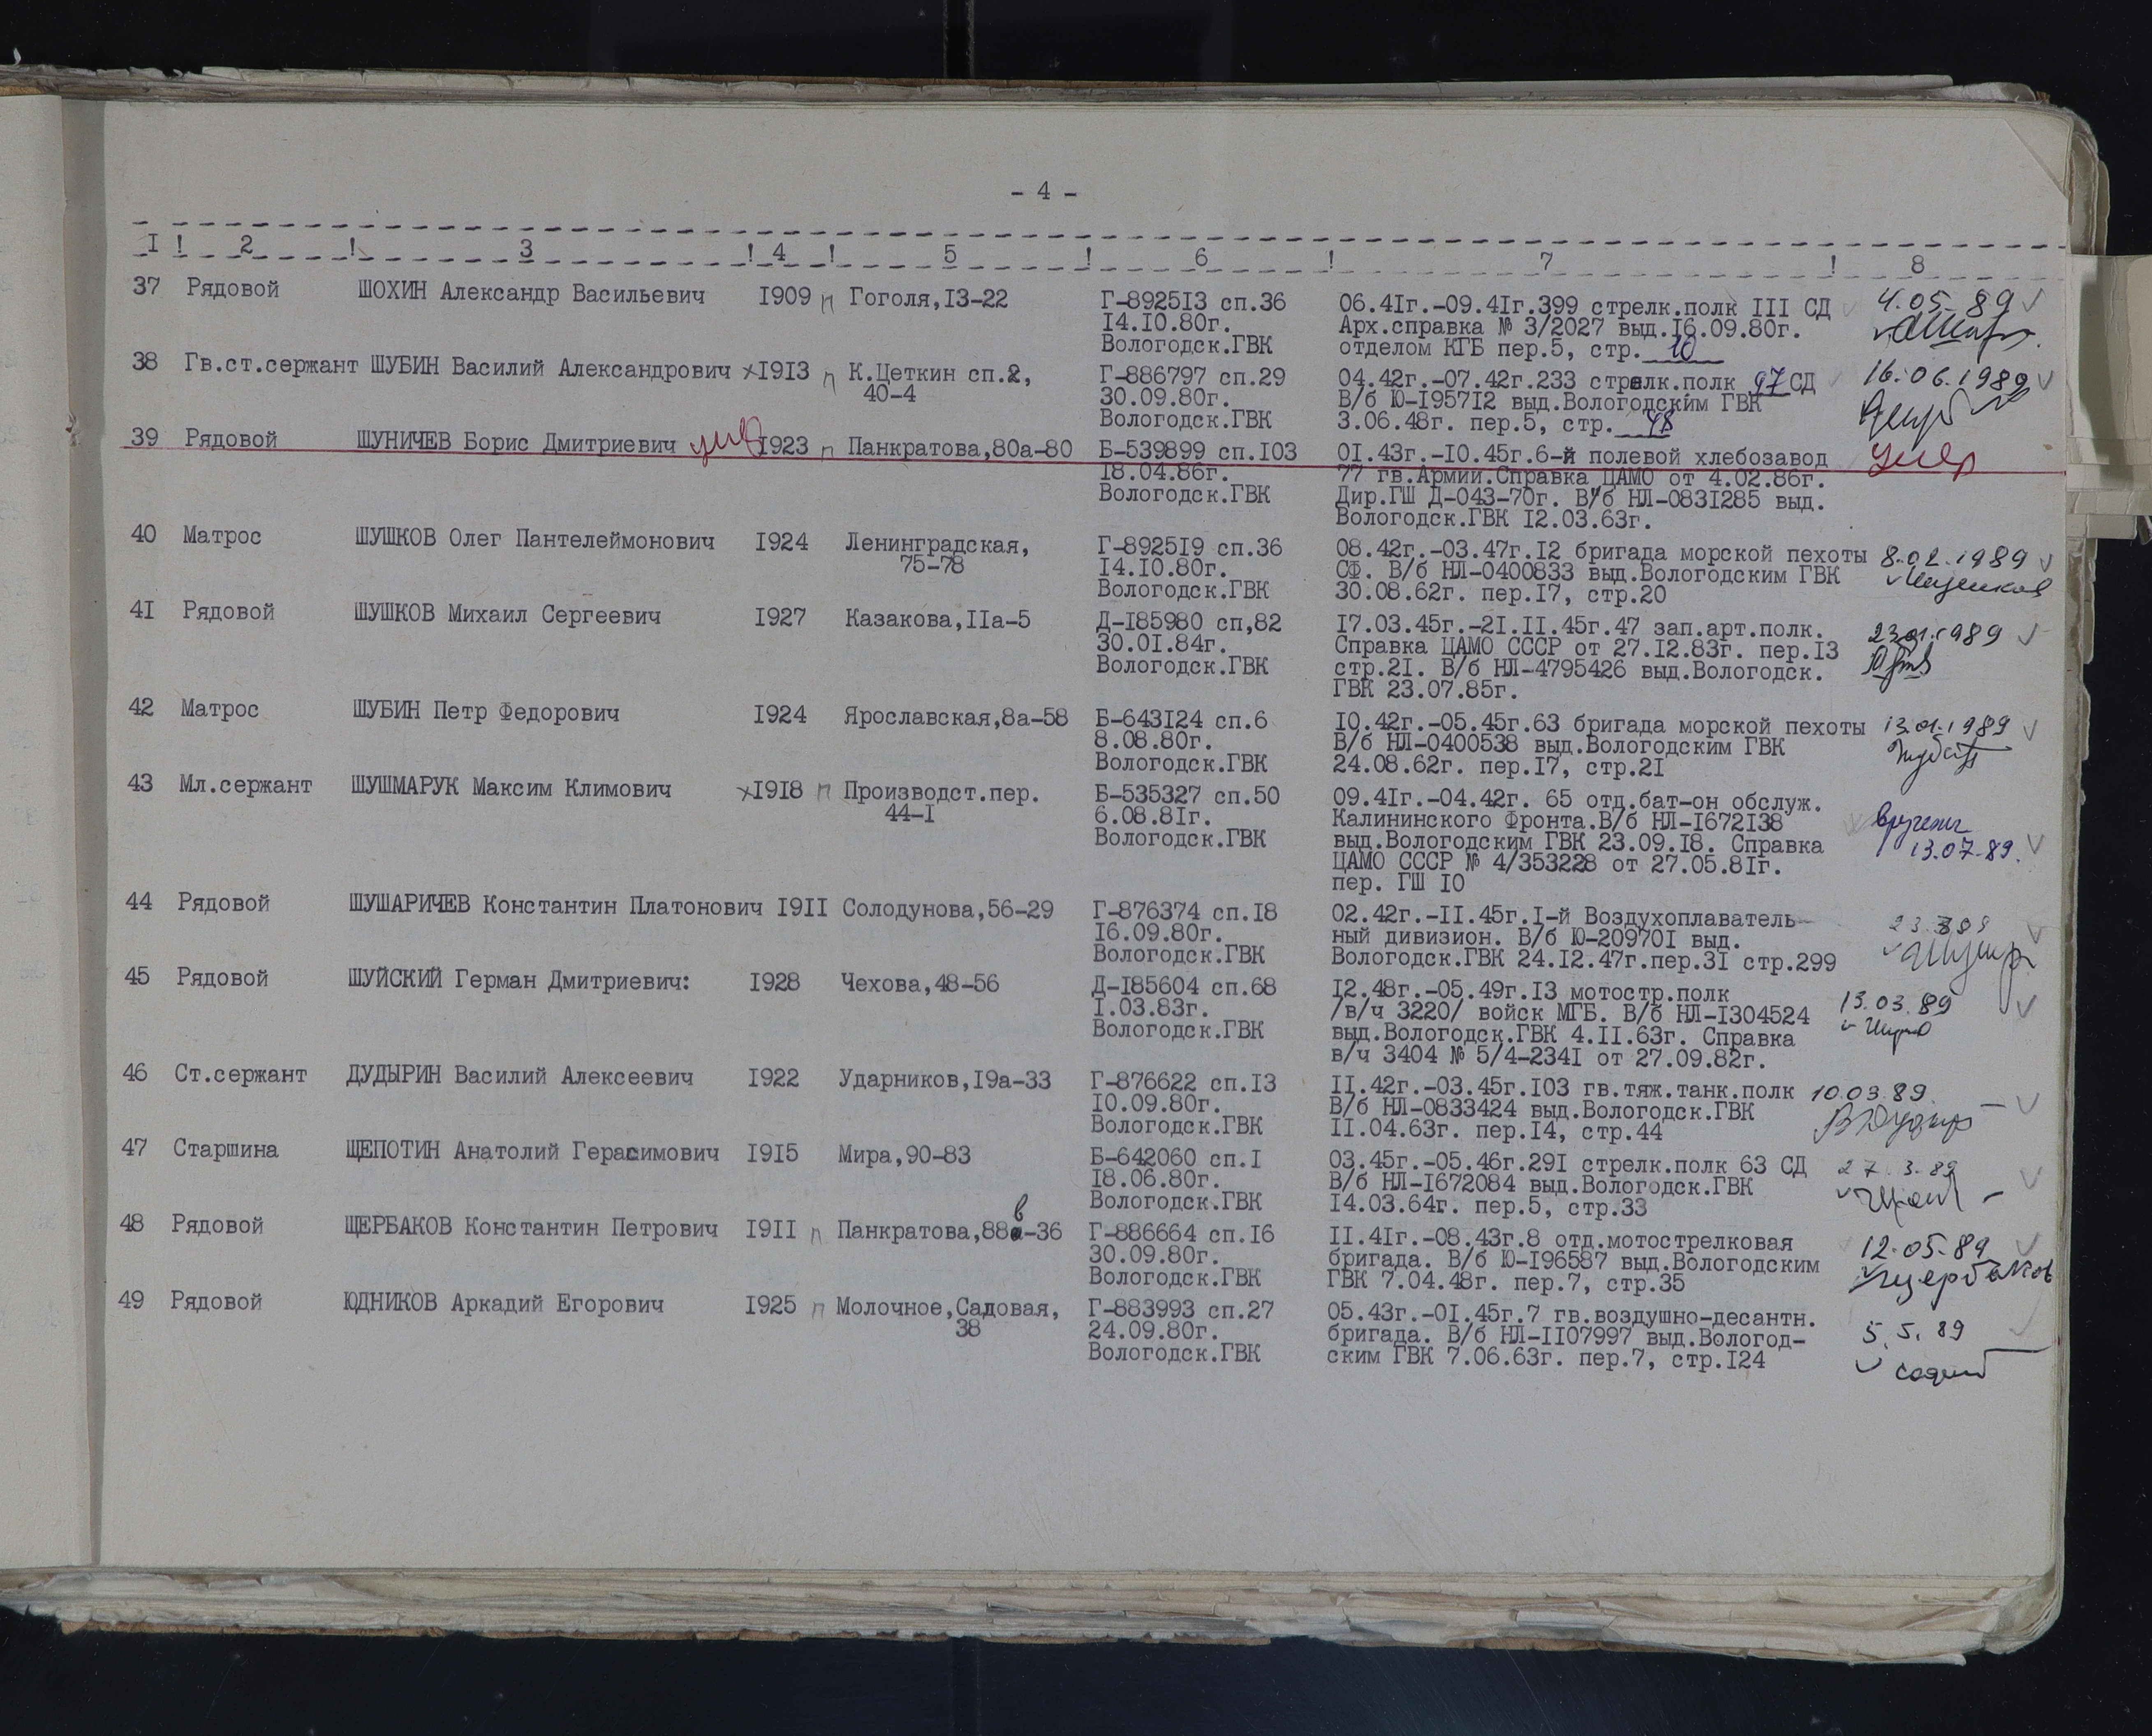 - 4 -
I ! 2 ! 3 ! 4 ! 5 ! 6 ! 7 ! 8
37 Рядовой ШОХИН Александр Васильевич I909 п Гоголя,I3-22 Г-8925I3 сп.36 06.4Iг.-09.4Iг.399 стрелк.полк III СД 4.05-89
I4.I0.80г. Арх.справка № 3/2027 выд.I6.09.80г.
Вологодск.ГВК отделом КГБ пер.5, стр. 10
38 Гв.ст.сержант ШУБИН Василий Александрович х I9I3 п К.Цеткин сп.2, Г-886797 сп.29 04.42г.-07.42г.233 стрелк.полк 97 СД 16.06.1989
40-4 30.09.80г. В/б Ю-I957I2 выд.Вологодским ГВК
Вологодск.ГВК 3.06.48г. пер.5, стр. 48
39 Рядовой ШУНИЧЕВ Борис Дмитриевич ум I923 п Панкратова,80а-80 Б-539899 сп.I03 0I.43г.-I0.45г.6-й полевой хлебозавод умер
I8.04.86г. 77 гв.Армии.Справка ЦАМО от 4.02.86г.
Вологодск.ГВК Дир.ГШ Д-043-70г. В/б НЛ-083I285 выд.
Вологодск.ГВК I2.03.63г.
40 Матрос ШУШКОВ Олег Пантелеймонович I924 Ленинградская, Г-8925I9 сп.36 08.42г.-03.47г.I2 бригада морской пехоты 8.02.1989
75-78 I4.I0.80г. СФ. В/б НЛ-0400833 выд.Вологодским ГВК
Вологодск.ГВК 30.08.62г. пер.I7, стр.20
4I Рядовой ШУШКОВ Михаил Сергеевич I927 Казакова,IIа-5 Д-I85980 сп,82 I7.03.45г.-2I.II.45г.47 зап.арт.полк. 23.01.1989
30.0I.84г. Справка ЦАМО СССР от 27.I2.83г. пер.I3
Вологодск.ГВК стр.2I. В/б НЛ-4795426 выд.Вологодск.
ГВК 23.07.85г.
42 Матрос ШУБИН Петр Федорович I924 Ярославская,8а-58 Б-643I24 сп.6 I0.42г.-05.45г.63 бригада морской пехоты 13.01.1989
8.08.80г. В/б НЛ-0400538 выд.Вологодским ГВК
Вологодск.ГВК 24.08.62г. пер.I7, стр.2I
43 Мл.сержант ШУШМАРУК Максим Климович х I9I8 п Производст.пер. Б-535327 сп.50 09.4Iг.-04.42г. 65 отд.бат-он обслуж.
44-I 6.08.8Iг. Калининского Фронта.В/б НЛ-I672I38 вручены
Вологодск.ГВК выд.Вологодским ГВК 23.09.I8. Справка 13.07.89.
ЦАМО СССР № 4/353228 от 27.05.8Iг.
пер. ГШ I0
44 Рядовой ШУШАРИЧЕВ Константин Платонович I9II Солодунова,56-29 Г-876374 сп.I8 02.42г.-II.45г.I-й Воздухоплаватель-
I6.09.80г. ный дивизион. В/б Ю-20970I выд.
Вологодск.ГВК Вологодск.ГВК 24.I2.47г.пер.3I стр.299
45 Рядовой ШУЙСКИЙ Герман Дмитриевич: I928 Чехова,48-56 Д-I85604 сп.68 I2.48г.-05.49г.I3 мотостр.полк 13.03.89
I.03.83г. /в/ч 3220/ войск МГБ. В/б НЛ-I304524
Вологодск.ГВК выд.Вологодск.ГВК 4.II.63г. Справка
в/ч 3404 № 5/4-234I от 27.09.82г.
46 Ст.сержант ДУДЫРИН Василий Алексеевич I922 Ударников,I9а-33 Г-876622 сп.I3 II.42г.-03.45г.I03 гв.тяж.танк.полк 10.03.89.
I0.09.80г. В/б НЛ-0833424 выд.Вологодск.ГВК
Вологодск.ГВК II.04.63г. пер.I4, стр.44
47 Старшина ЩЕПОТИН Анатолий Герасимович I9I5 Мира,90-83 Б-642060 сп.I 03.45г.-05.46г.29I стрелк.полк 63 СД 27.3.89
I8.06.80г. В/б НЛ-I672084 выд.Вологодск.ГВК
Вологодск.ГВК I4.03.64г. пер.5, стр.33
48 Рядовой ЩЕРБАКОВ Константин Петрович I9II п Панкратова,88в-36 Г-886664 сп.I6 II.4Iг.-08.43г.8 отд.мотострелковая 12.05-89
30.09.80г. бригада. В/б Ю-I96587 выд.Вологодским Щербаков
Вологодск.ГВК ГВК 7.04.48г. пер.7, стр.35
49 Рядовой ЮДНИКОВ Аркадий Егорович I925 п Молочное,Садовая, Г-883993 сп.27 05.43г.-0I.45г.7 гв.воздушно-десантн.
38 24.09.80г. бригада. В/б НЛ-II07997 выд.Вологод- 5.5.89
Вологодск.ГВК ским ГВК 7.06.63г. пер.7, стр.I24